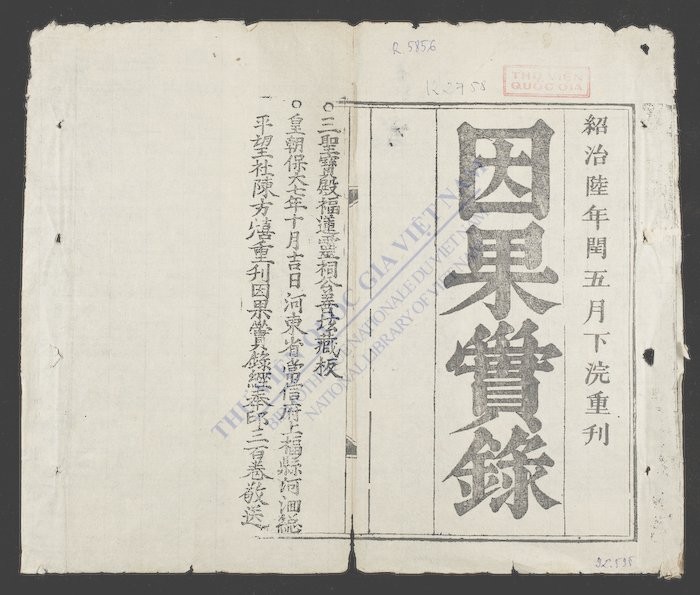 R.5856
R.2758
THƯ VIỆN
QUỐC GIA
紹治陸年閏五月下浣重刊
因果實錄
三聖寶殿福蓮靈祠公善弦藏板
皇朝保大七年十月吉日河東省常信府上福縣河洄總
平望社陳方禧重刊因果實錄經奉印三百卷敬送
THƯ VIỆN QUỐC GIA VIỆT NAM
BIBLIOTHÈQUE NATIONALE DU VIETNAM
NATIONAL LIBRARY OF VIETNAM